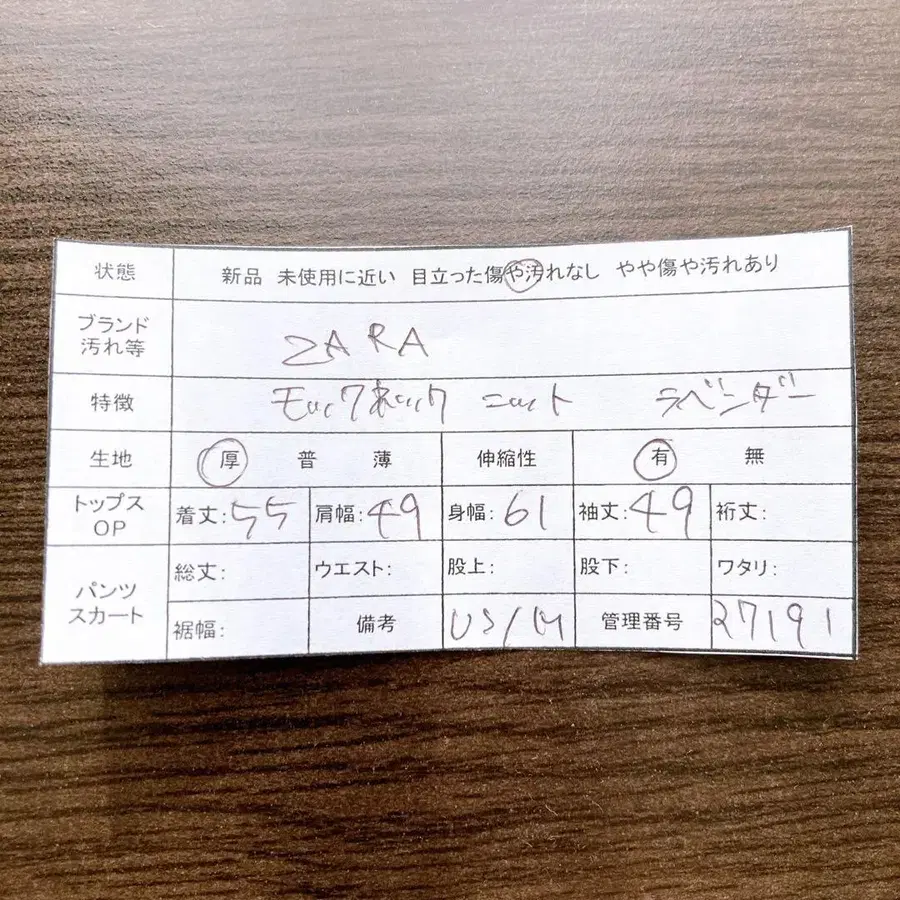 状態 新品 未使用に近い 目立った傷や汚れなし やや傷や汚れあり
ブランド
汚れ等 ZARA
特徴 モックネック ニット ラベンダー
生地 厚 普 薄 伸縮性 有 無
トップス
OP 着丈:55 肩幅:49 身幅:61 袖丈:49 裄丈:
パンツ
スカート 総丈: ウエスト: 股上: 股下: ワタリ:
裾幅: 備考 US/M 管理番号 27191